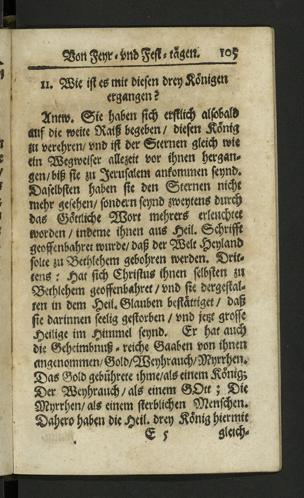 Von Feyr- vnd Fest-tägen. 105
11. Wie ist es mit diesen drey Königen
ergangen?
Antw. Sie haben sich erstlich alsobald
auf die weite Raiß begeben / diesen König
zu verehren / vnd ist der Sternen gleich wie
ein Wegweiser allezeit vor ihnen hergan-
gen / biß sie zu Jerusalem ankommen seynd.
Daselbsten haben sie den Sternen nicht
mehr gesehen / sondern seynd zweytens durch
das Göttliche Wort mehrers erleuchtet
worden / indeme ihnen aus Heil. Schrifft
geoffenbahret wurde / daß der Welt Heyland
solte zu Bethlehem gebohren werden. Drit-
tens: Hat sich Christus ihnen selbsten zu
Bethlehem geoffenbahret / vnd sie dergestal-
ten in dem Heil. Glauben bestättiget / daß
sie darinnen seelig gestorben / vnd jetzt grosse
Heilige im Himmel seynd. Er hat auch
die Geheimbnuß-reiche Gaaben von ihnen
angenommen / Gold / Weyhrauch / Myrrhen.
Das Gold gebührete ihme / als einem König;
Der Weyhrauch / als einem GOtt; Die
Myrrhen / als einem sterblichen Menschen.
Dahero haben die Heil. drey König hiermit
E 5 gleich-